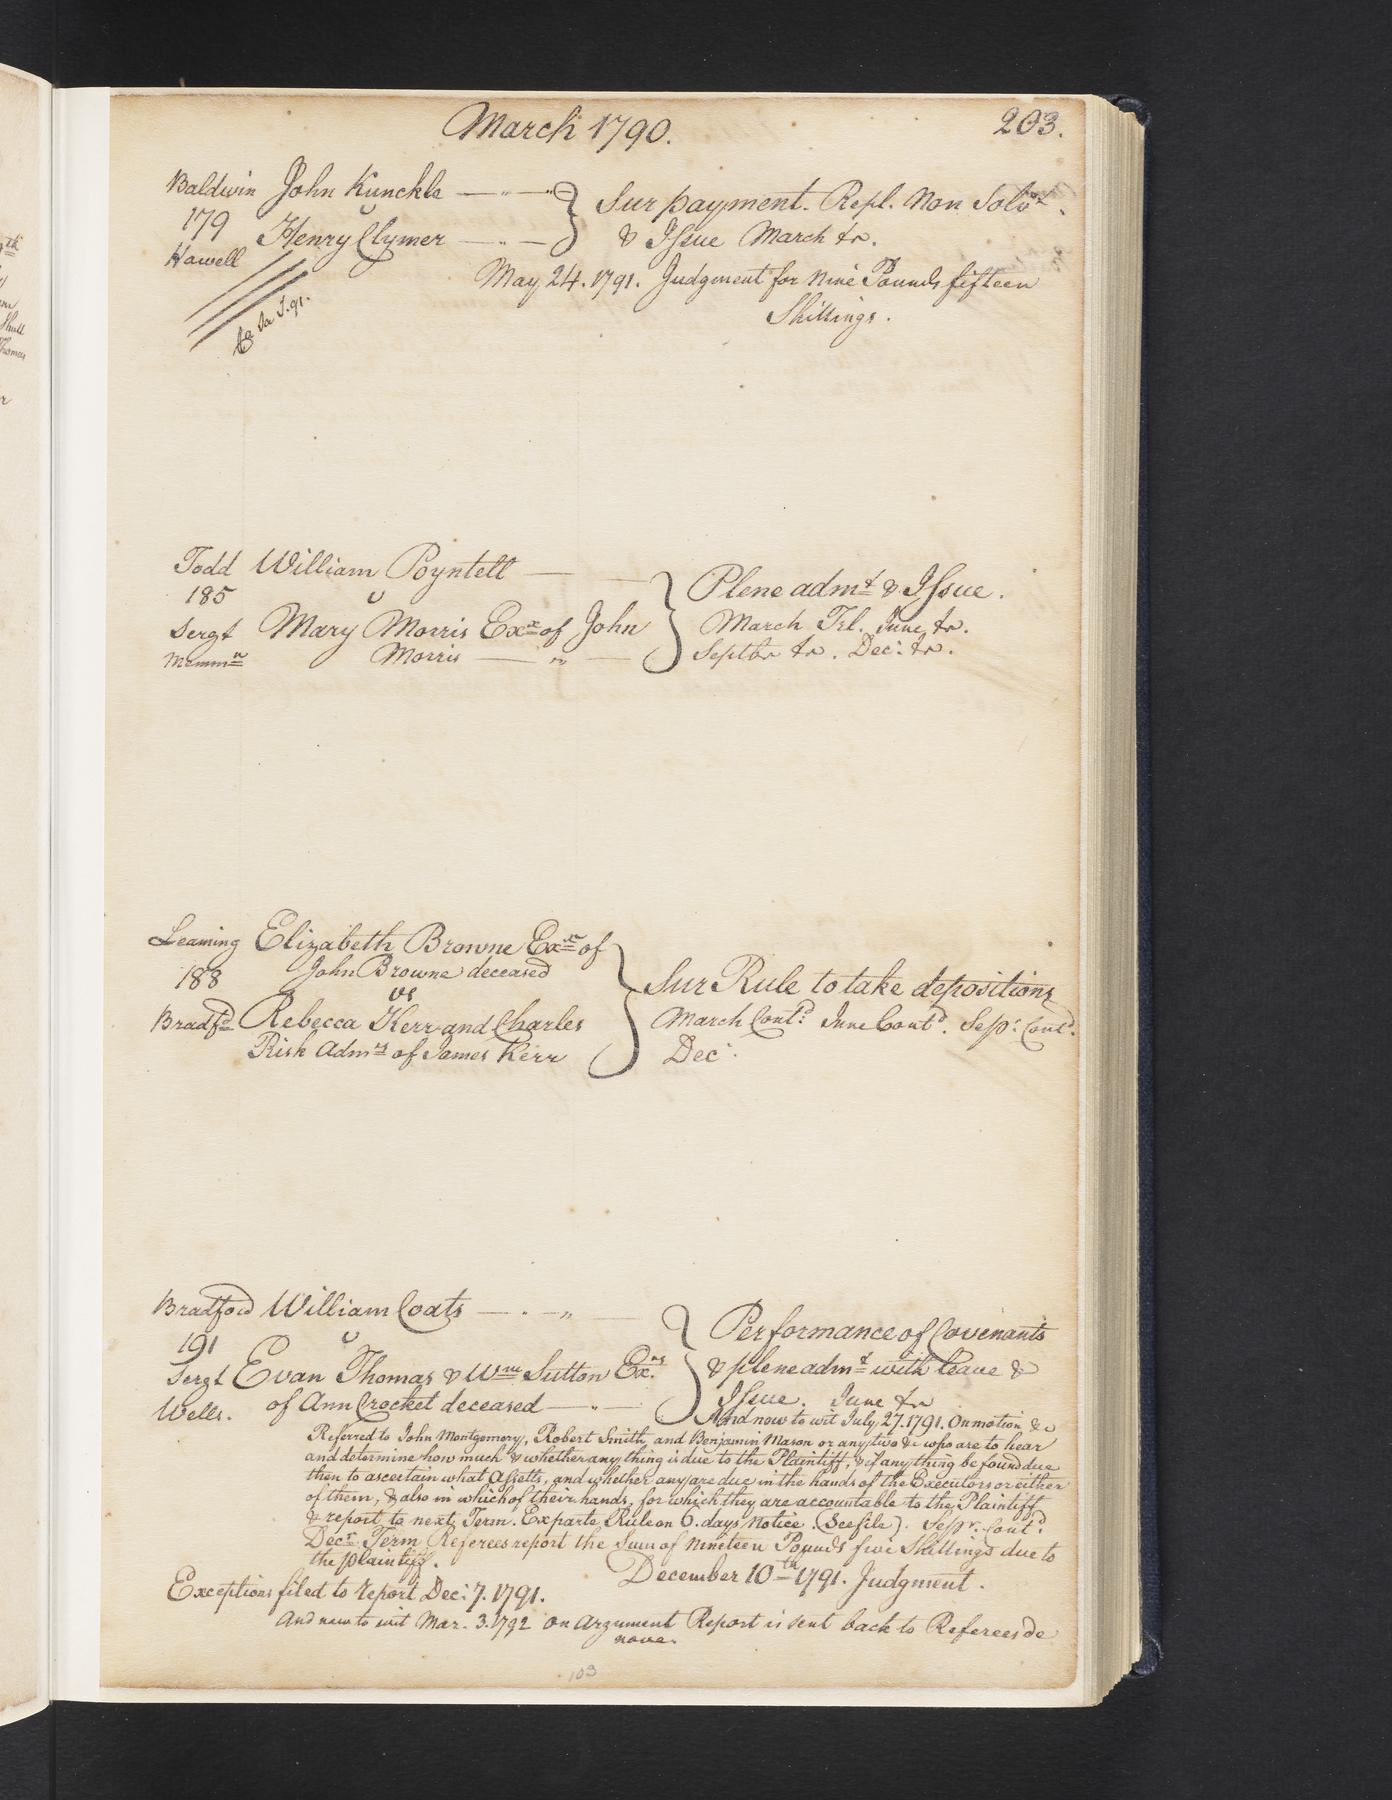 March 1790.
203.
Baldwin John Kunckle
179 v
Henry Clymer
Howell
Sur payment. Repl. Non Solvt.
& Issue March tr.
May 24. 1791. Judgment for Nine Pounds fifteen
Shillings.
Ca Sa S. 91.
Todd William Poyntell
185 v
Sergt Mary Morris Exx of John
Morris
Plene admt & Issue.
March Trl. June tr.
Septbr tr. Decr tr.
Leaming Elizabeth Browne Exx of
188 John Browne deceased
vs
Bradfd Rebecca Kerr and Charles
Risk Admrs of James Kerr
Sur Rule to take depositions
March Contd. June Contd. Sepr. Contd.
Decr.
Bradford William Coats
191 v
Sergt Evan Thomas & Wm Sutton Exrs
Wells. of Ann Crocket deceased
Performance of Covenants
& plene admt with leave &
Issue. June tr
And now to wit July 27. 1791. On motion &c
Referred to John Montgomery, Robert Smith, and Benjamin Mason or any two &c who are to hear
and determine how much & whether any thing is due to the Plaintiff, & if any thing be found due
then to ascertain what Assetts, and whether any are due in the hands of the Executors or either
of them, & also in which of their hands, for which they are accountable to the Plaintiff
& report to next Term. Ex parte Rule on 6. days Notice. (See file). Sepr. Contd.
Decr Term Referees report the Sum of Nineteen Pounds five Shillings due to
the plaintiff. December 10th 1791. Judgment.
Exceptions filed to report Dec: 7. 1791.
And now to wit Mar. 3. 1792 on Argument Report is sent back to Referees de
novo.
103